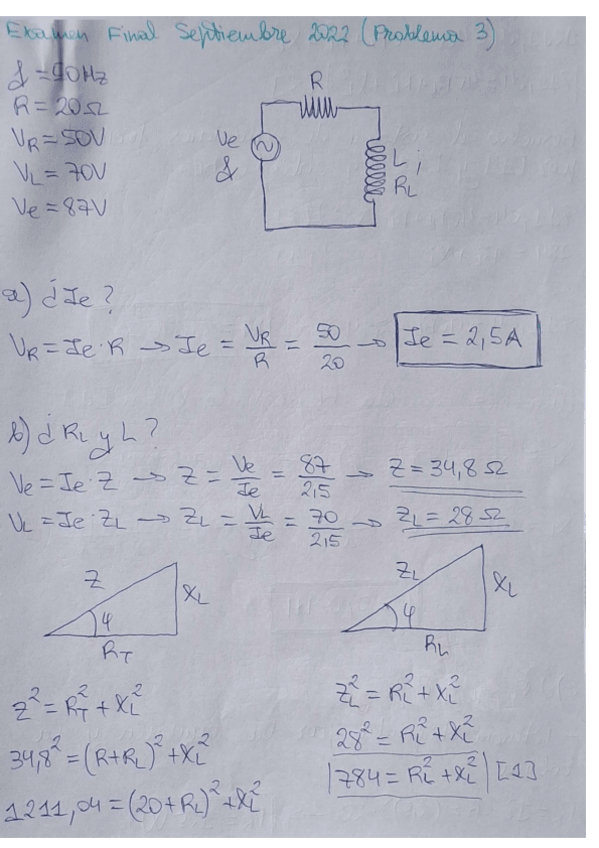 Examen Final Septiembre 2022 (Problema 3)
f = 90Hz
R = 20Ω
V_R = 50V
V_L = 70V
Ve = 87V
R
Ve
f
L
R_L
;
a) ¿Ie?
V_R = Ie·R → Ie = V_R/R = 50/20 → Ie = 2,5A
b) ¿R_L y L?
Ve = Ie·Z → Z = Ve/Ie = 87/2,5 → Z = 34,8 Ω
V_L = Ie·Z_L → Z_L = V_L/Ie = 70/2,5 → Z_L = 28 Ω
Z
X_L
φ
R_T
Z_L
X_L
φ
R_L
Z² = R_T² + X_L²
34,8² = (R+R_L)² + X_L²
1211,04 = (20+R_L)² + X_L²
Z_L² = R_L² + X_L²
28² = R_L² + X_L²
784 = R_L² + X_L² [1]